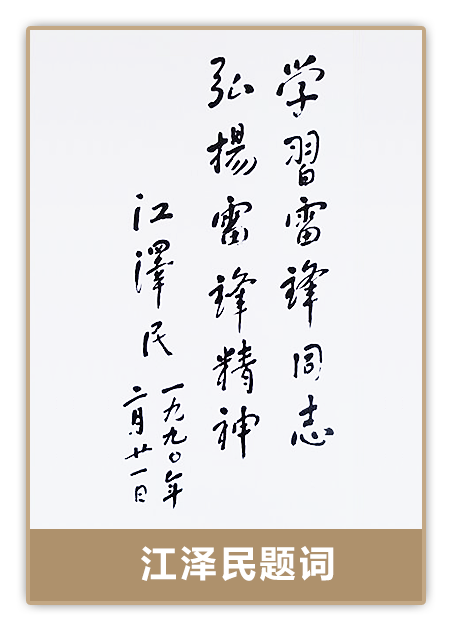 学習雷鋒同志
弘揚雷鋒精神
江澤民
一九九〇年
二月廿一日
江泽民题词